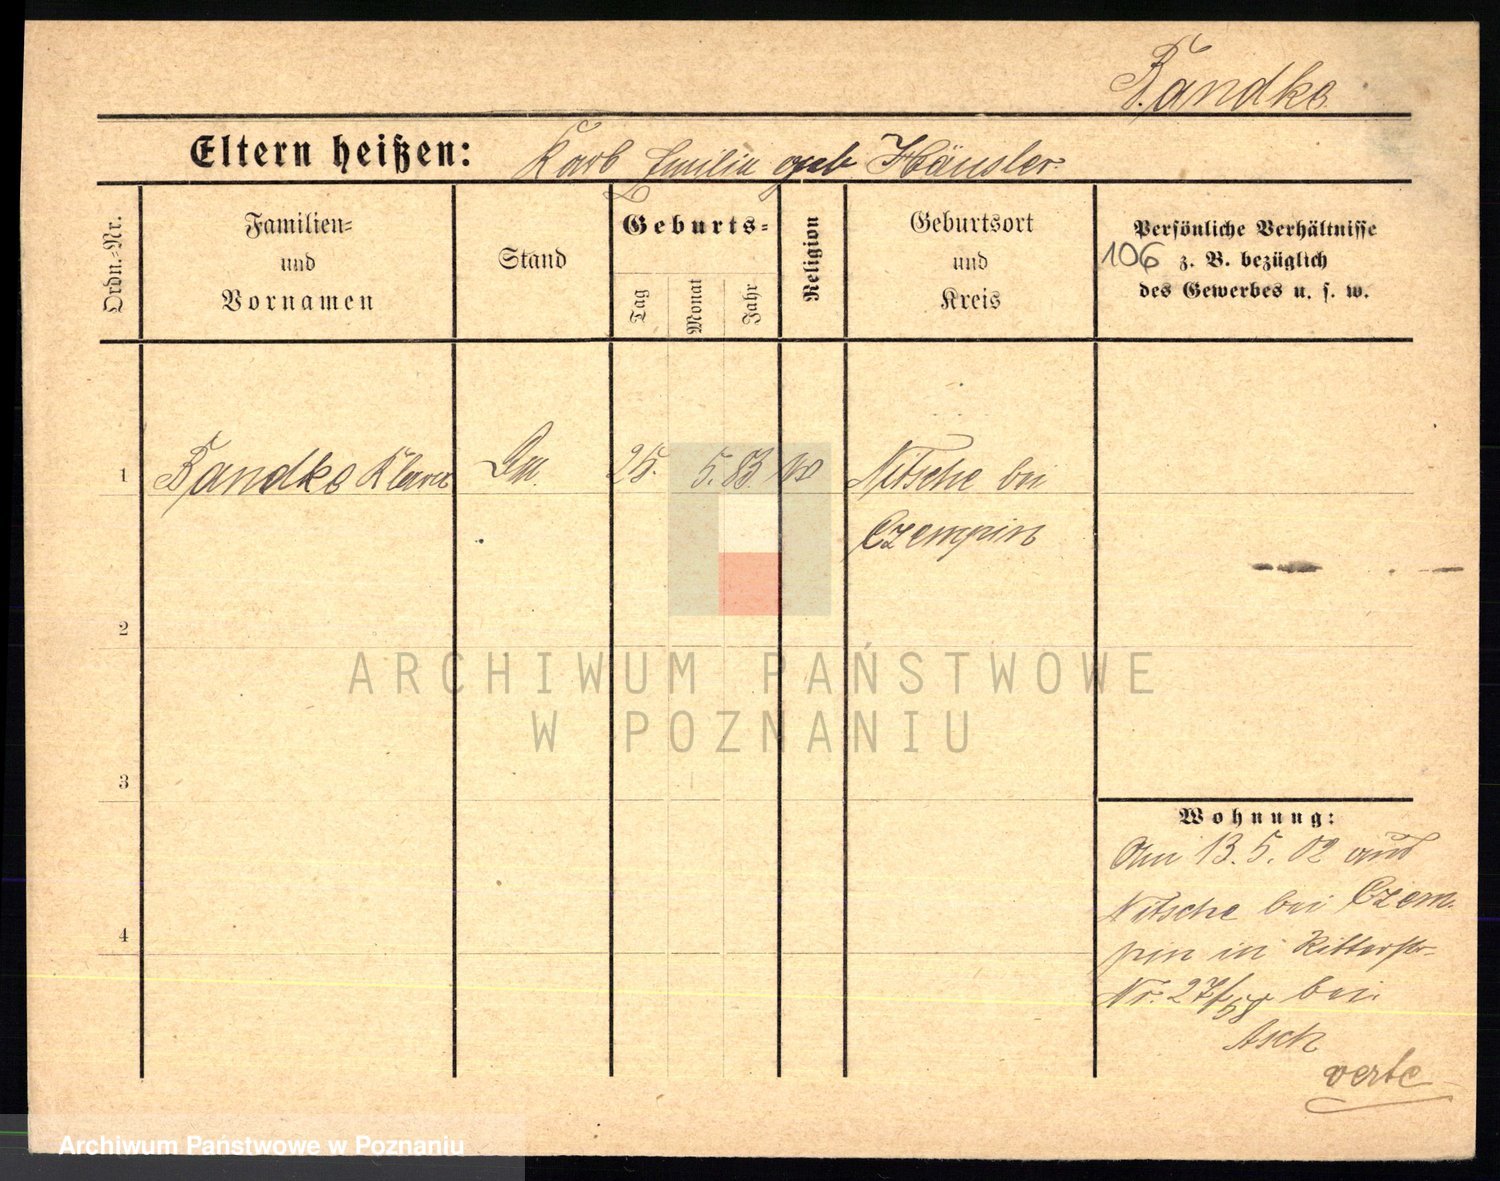 Bandke
Eltern heißen: Karl Emilia geb Hänsler.
Ordn.-Nr.
Familien-
und
Vornamen
Stand
Geburts-
Tag
Monat
Jahr
Religion
Geburtsort
und
Kreis
Persönliche Verhältnisse
106 z. B. bezüglich
des Gewerbes u. s. w.
1 Bandke 25. 5. 83 Nitsche bei
Czempin
2
3
4
Wohnung:
Am 13. 5. 02 aus
Nitsche bei Czem-
pin in Ritterstr-
Nr. 27/58 bei
Asch
verte
ARCHIWUM PAŃSTWOWE
W POZNANIU
Archiwum Państwowe w Poznaniu